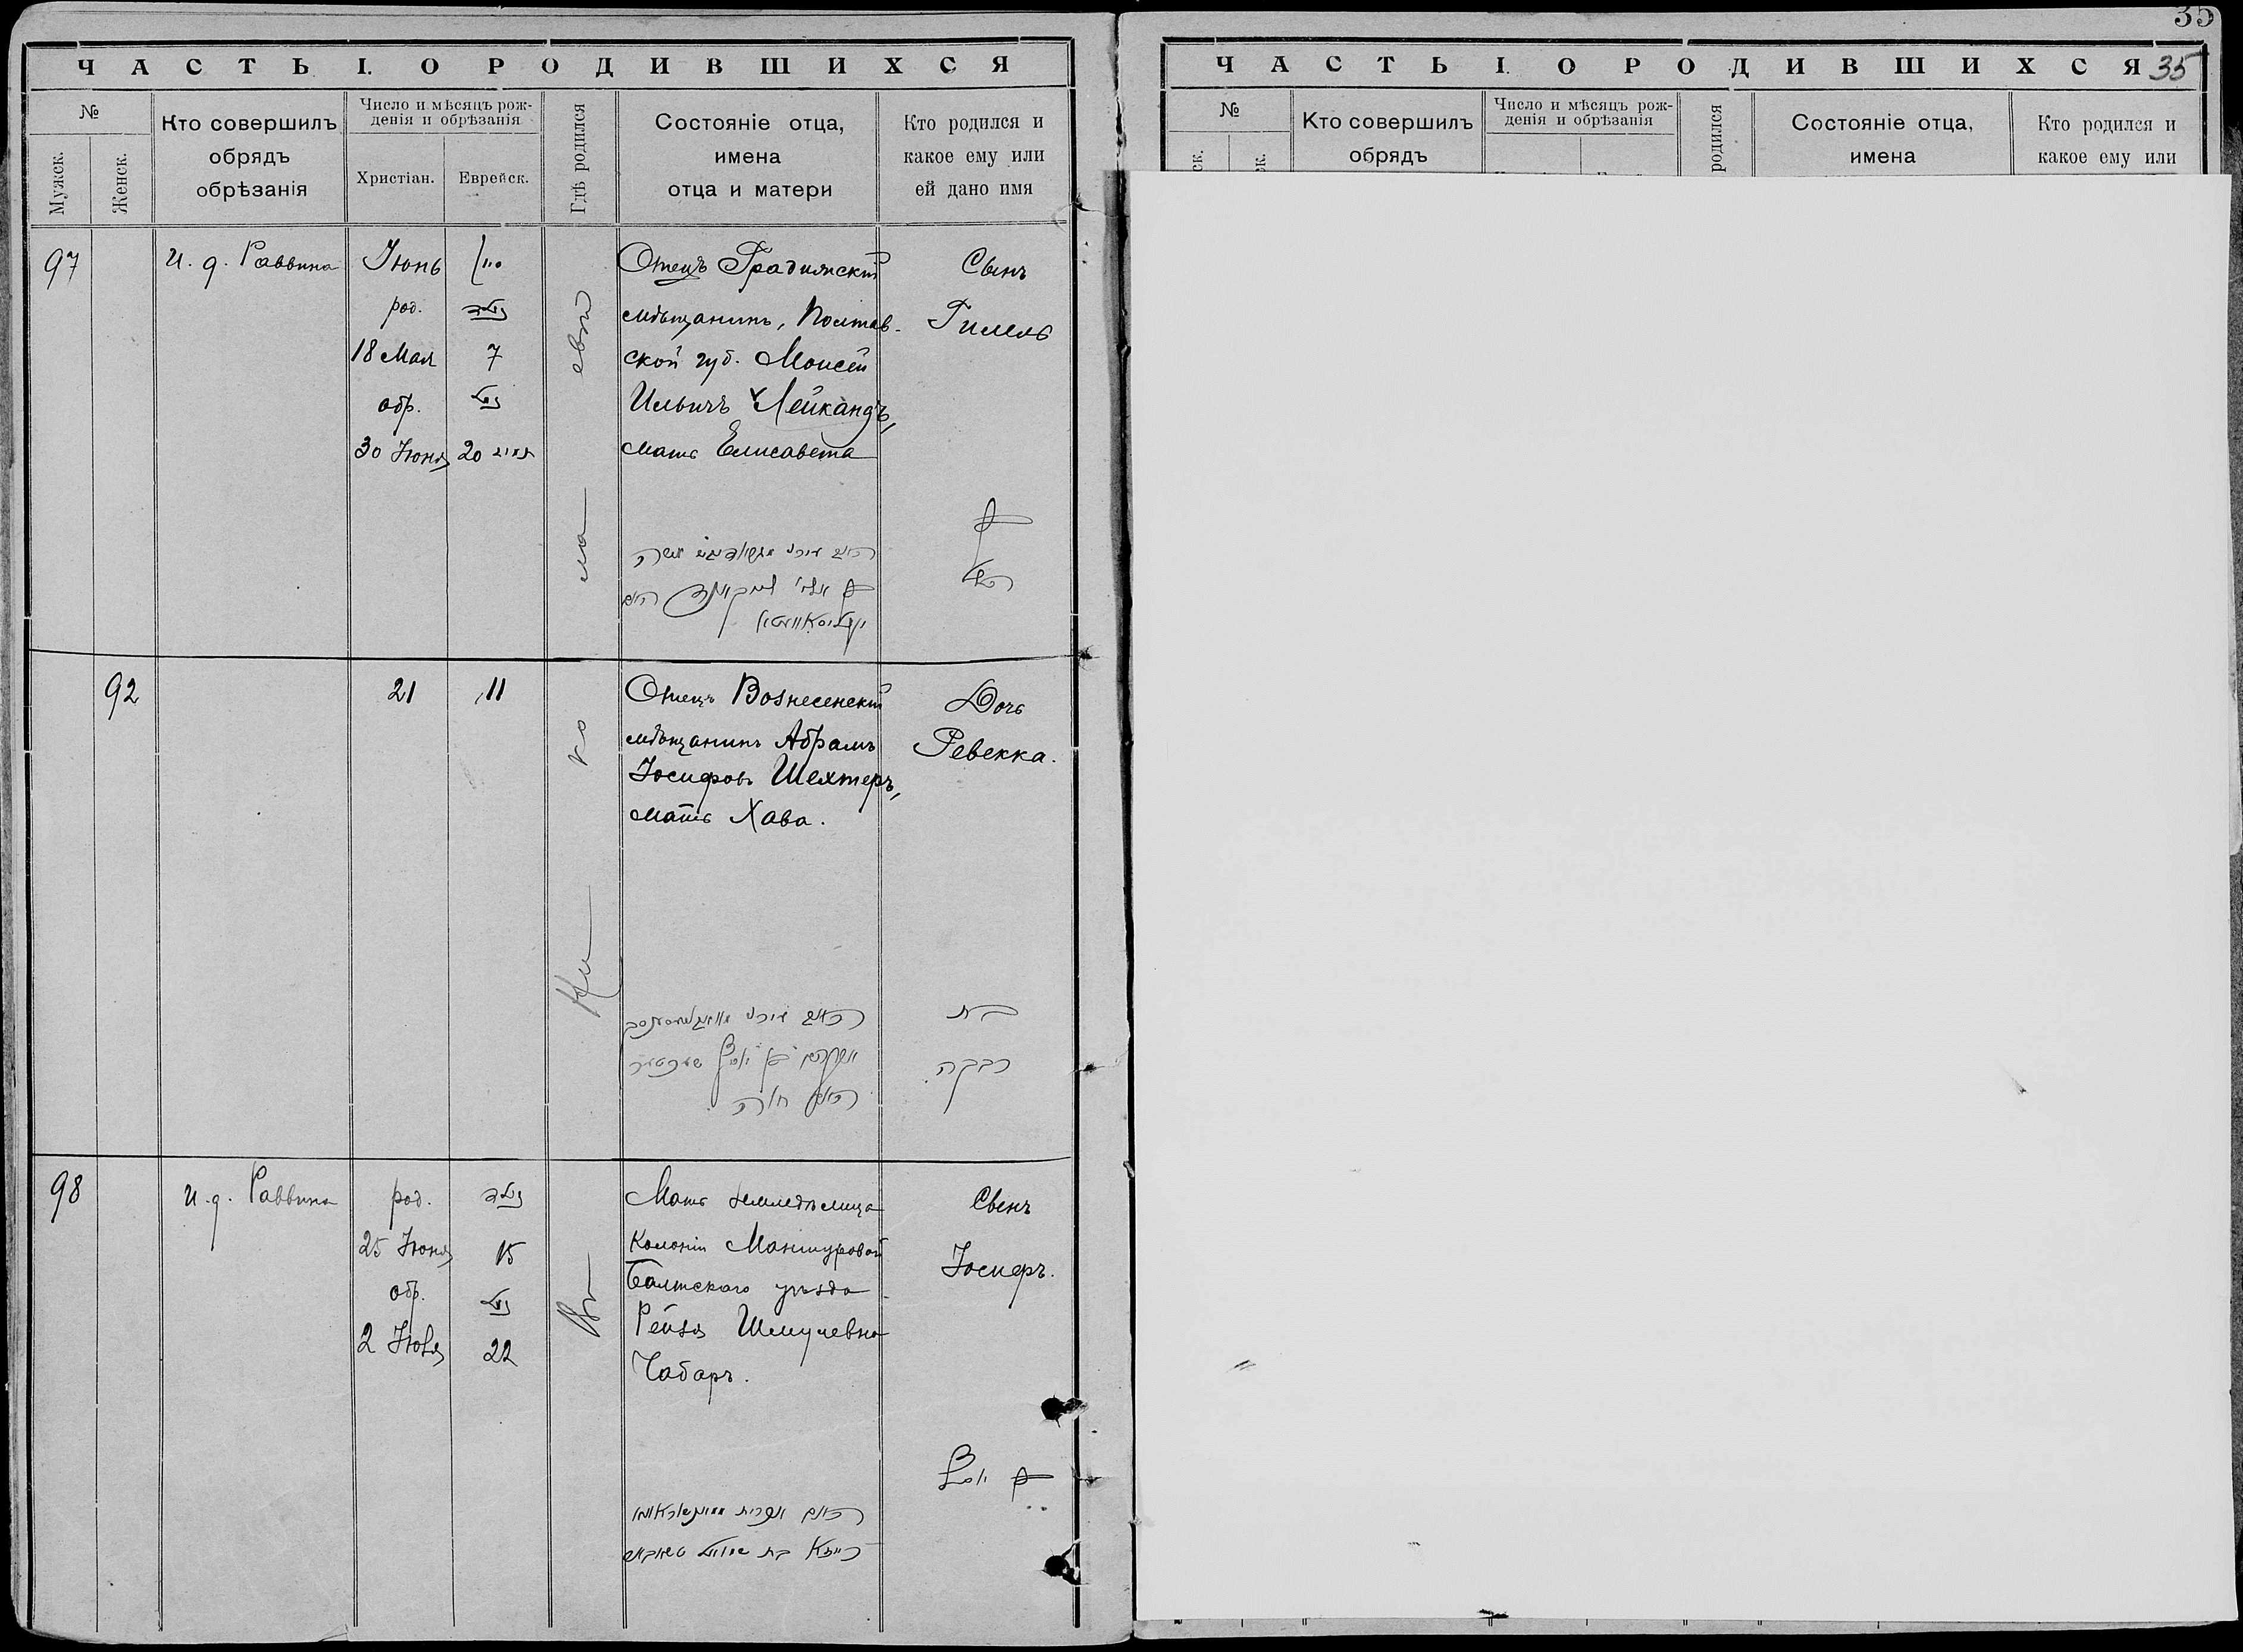 35
ЧАСТЬ I. О РОДИВШИХСЯ
№
Мужск.
Женск.
Кто совершилъ
обрядъ
обрѣзанія
Число и мѣсяцъ рож-
денія и обрѣзанія
Христіан.
Еврейск.
Гдѣ родился
Состояніе отца,
имена
отца и матери
Кто родился и
какое ему или
ей дано имя
97
И. д. Раввина
Іюнь
род.
18 Мая
обр.
30 Іюня
סיון
נולד
7
נמול
20 תמוז
Отецъ Градижскій
мѣщанинъ, Полтав-
ской губ. Моисей
Ильичъ Лейкандъ,
мать Елисавета
Сынъ
Гилель
בן
הלל
92
21
11
Отецъ Вознесенскій
мѣщанинъ Абрамъ
Іосифовъ Шехтеръ,
мать Хава.
Дочь
Ревекка.
האב עירוני
אברהם בן יוסף שעכטער
האם חוה
בת
רבקה
98
И. д. Раввина
род.
25 Іюня
обр.
2 Іюля
נולד
15
נמול
22
Мать земледѣлица
колоніи Маншуровой
Балтскаго уѣзда
Рейзя Шмулевна
Чабаръ.
Сынъ
Іосифъ.
בן יוסף
Въ Ни ко ла евѣ
ЧАСТЬ I. О РОДИВШИХСЯ 35
№
ск.
ск.
Кто совершилъ
обрядъ
Число и мѣсяцъ рож-
денія и обрѣзанія
родился
Состояніе отца,
имена
Кто родился и
какое ему или